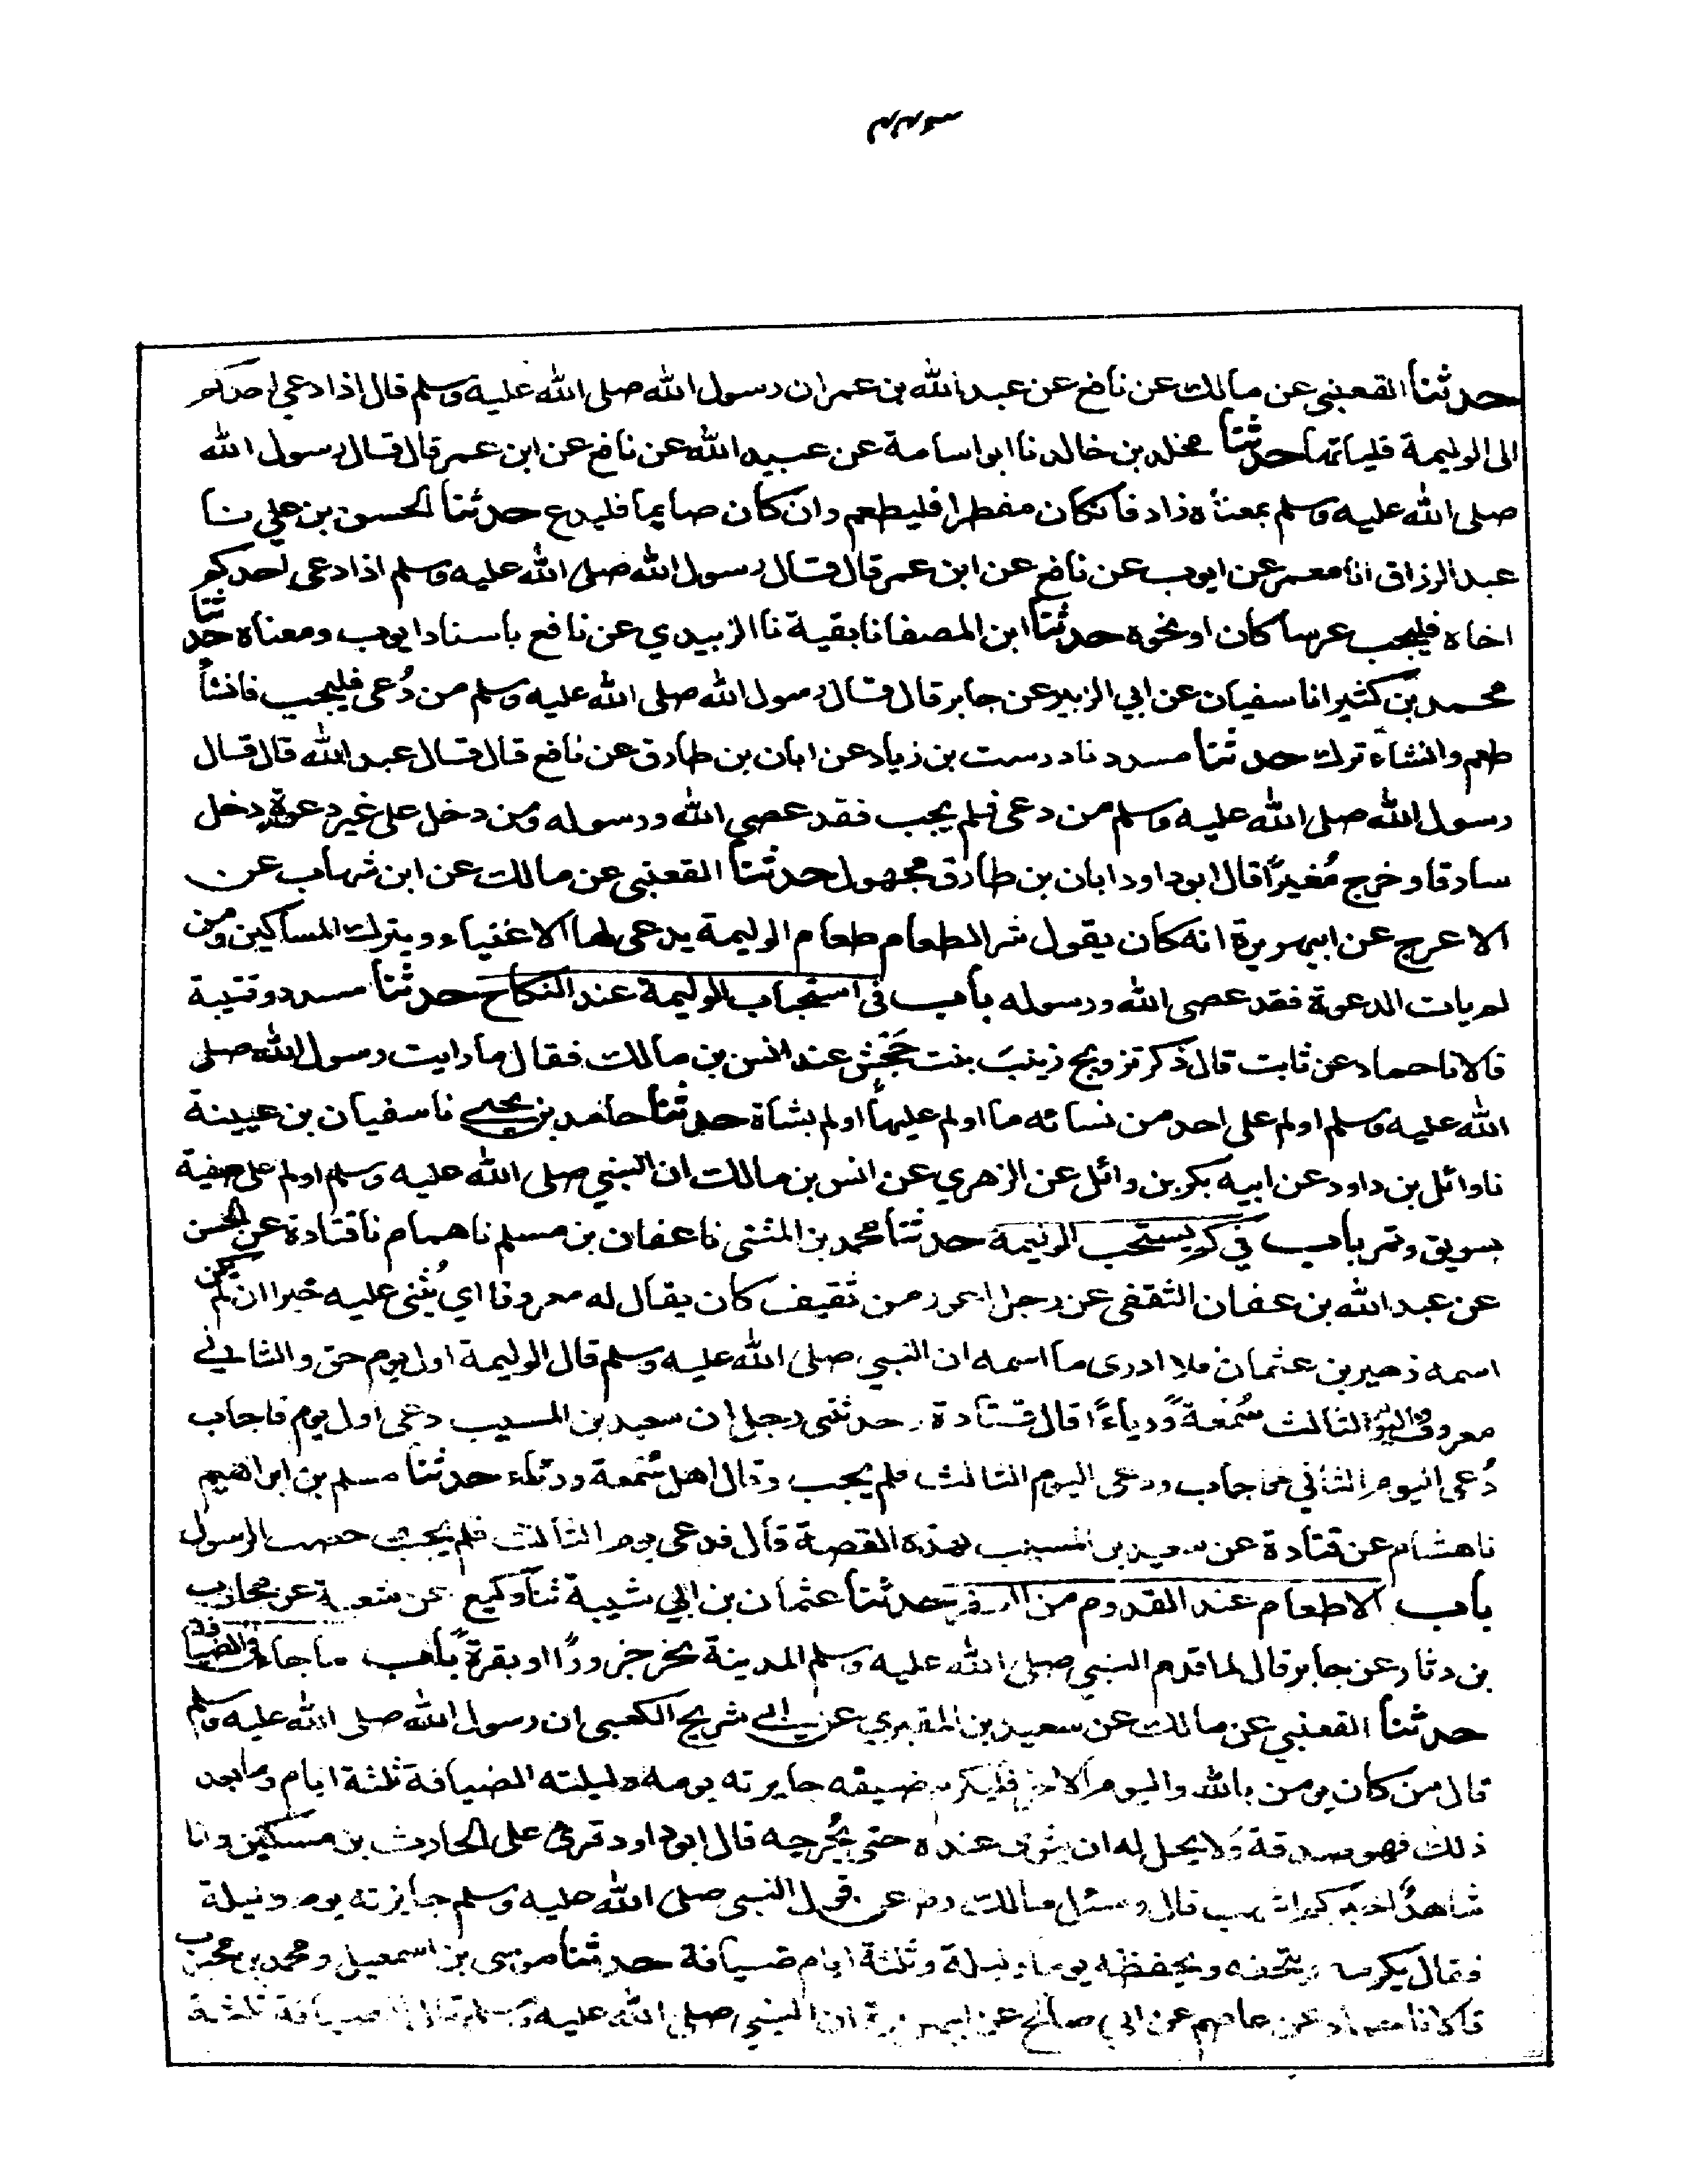 حدثنا القعنبي عن مالك عن نافع عن عبد الله بن عمر ان رسول الله صلى الله عليه وسلم قال اذا دعي احدكم
الى الوليمة فلياتها حدثنا مخلد بن خالد نا ابو اسامة عن عبيد الله عن نافع عن ابن عمر قال قال رسول الله
صلى الله عليه وسلم بمعناه زاد فان كان مفطرا فليطعم وان كان صايما فليدع حدثنا الحسن بن علي نا
عبد الرزاق انا معمر عن ايوب عن نافع عن ابن عمر قال قال رسول الله صلى الله عليه وسلم اذا دعى احدكم
اخاه فليجب عرسا كان او نحوه حدثنا ابن المصفا نا بقية نا الزبيدي عن نافع باسناد ايوب ومعناه حدثنا
محمد بن كثير انا سفيان عن ابي الزبير عن جابر قال قال رسول الله صلى الله عليه وسلم من دُعى فليجب فان شأ
طعم وان شاء ترك حدثنا مسدد نا درست بن زياد عن ابان بن طارق عن نافع قال قال عبد الله قال قال
رسول الله صلى الله عليه وسلم من دعى فلم يجب فقد عصى الله ورسوله ومن دخل على غير دعوة دخل
سارقا وخرج مُغيرًا قال ابو داود ابان بن طارق مجهول حدثنا القعنبى عن مالك عن ابن شهاب عن
الاعرج عن ابي هريرة انه كان يقول شر الطعام طعام الوليمة يدعى لها الاغنياء ويترك المساكين ومن
لم يات الدعوة فقد عصى الله ورسوله باب فى استحباب الوليمة عند النكاح حدثنا مسدد وقتيبة
قالا نا حماد عن ثابت قال ذكر تزويج زينب بنت جحش عند انس بن مالك فقال ما رايت رسول الله صلى
الله عليه وسلم اولم على احد من نسائه ما اولم عليها اولم بشاة حدثنا حامد بن يحيى نا سفيان بن عيينة
نا وائل بن داود عن ابيه بكر بن وائل عن الزهري عن انس بن مالك ان النبي صلى الله عليه وسلم اولم على صفية
بسويق وتمر باب في كم يستحب الوليمة حدثنا محمد بن المثنى نا عفان بن مسلم نا همام نا قتادة عن الحسن
عن عبد الله بن عفان الثقفى عن رجل اعور من ثقيف كان يقال له معروفا اي يُثنى عليه خيرا ان لم يكن
اسمه زهير بن عثمان فلا ادرى ما اسمه ان النبي صلى الله عليه وسلم قال الوليمة اول يوم حق والثاني
معروف واليوم الثالث سُمعة ورياءً قال قتادة حدثنى رجل ان سعيد بن المسيب دعى اول يوم فاجاب
دُعى اليوم الثاني فاجاب ودعى اليوم الثالث فلم يجب وقال اهل سُمعة ورئاء حدثنا مسلم بن ابراهيم
نا هشام عن قتادة عن سعيد بن المسيب بهذه القصة قال فدعى يوم الثالث فلم يجب حصب الرسول
باب الاطعام عند القدوم من السفر حدثنا عثمان بن ابي شيبة ثنا وكيع عن شعبة عن محارب
بن دثار عن جابر قال لما قدم النبي صلى الله عليه وسلم المدينة نحر جزورًا او بقرة باب ما جاء فى الضيافة
حدثنا القعنبي عن مالك عن سعيد بن المقبري عن ابي شريح الكعبى ان رسول الله صلى الله عليه وسلم
قال من كان يومن بالله واليوم الاخر فليكرم ضيفه جايزته يومه وليلته الضيافة ثلثة ايام وما بعد
ذلك فهو صدقة ولا يحل له ان يثوى عنده حتى يُحرجه قال ابو داود قرئ على الحارث بن مسكين وانا
شاهدٌ اخبركم اشهب قال وسئل مالك عن قول النبي صلى الله عليه وسلم جايزته يوم وليلة
فقال يكرمه ويتحفه ويحفظه يوما وليلة وثلثة ايام ضيافة حدثنا موسى بن اسمعيل ومحمد بن محبوب
قالا نا حماد عن عاصم عن ابي صالح عن ابي هريرة ان النبي صلى الله عليه وسلم قال الضيافة ثلثة